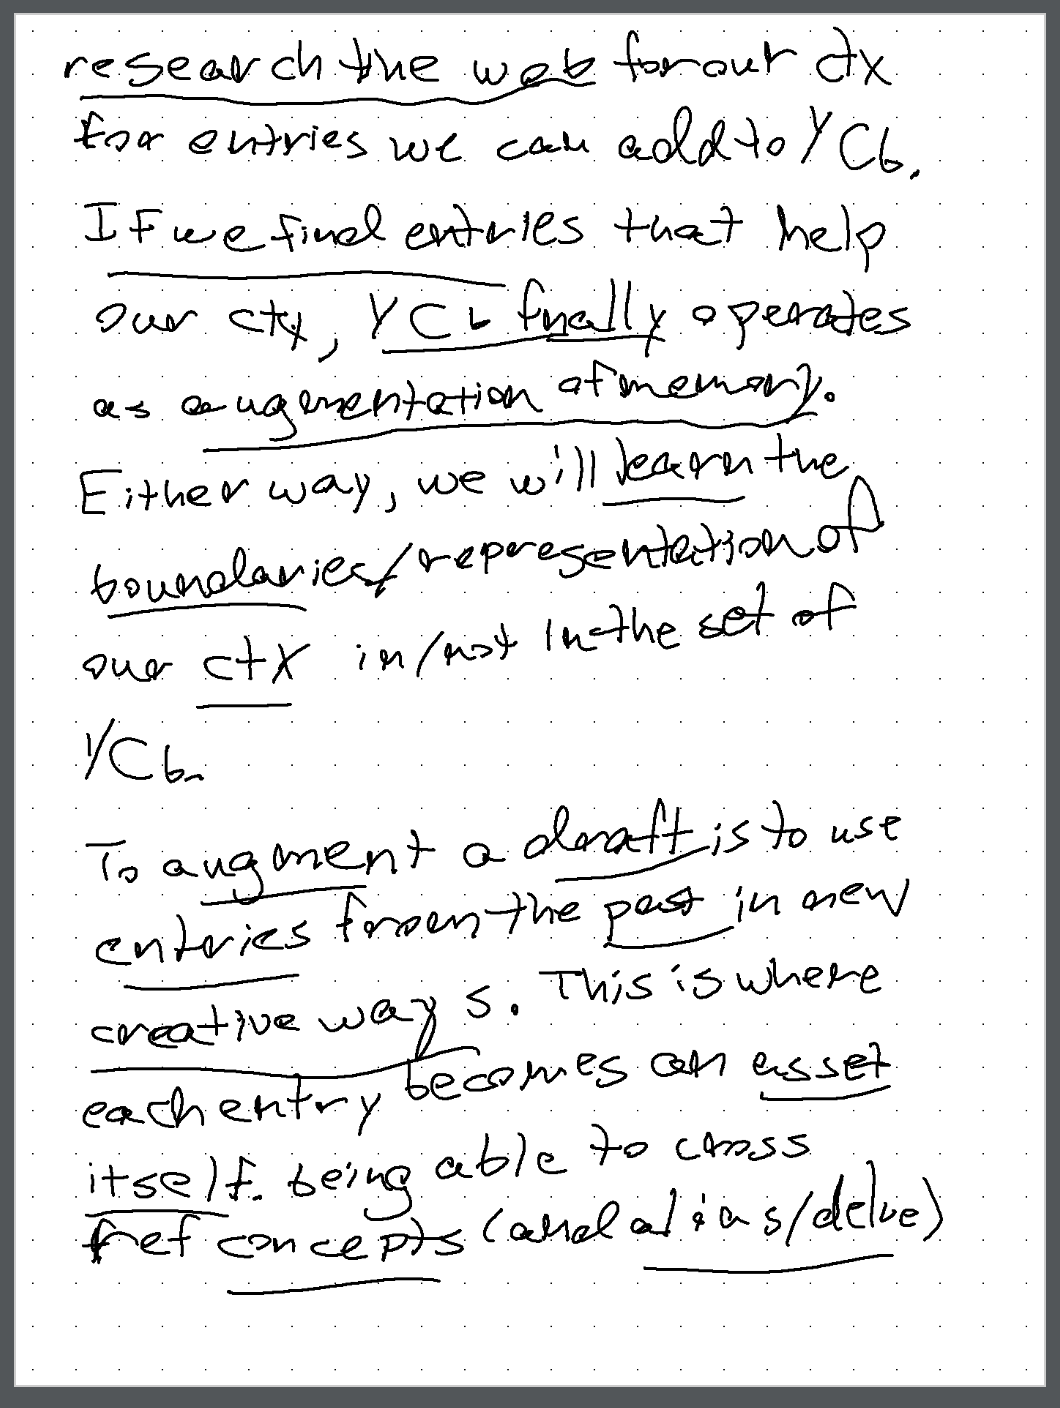 research the web for our ctx
for entries we can add to YCb.
If we find entries that help
our ctx, YCb finally operates
as augmentation of memory.
Either way, we will learn the
boundaries/representation of
our ctx in/not in the set of
YCb.
To augment a draft is to use
entries from the past in new
creative ways. This is where
each entry becomes an asset
itself. being able to cross
ref concepts (and alias/delve)